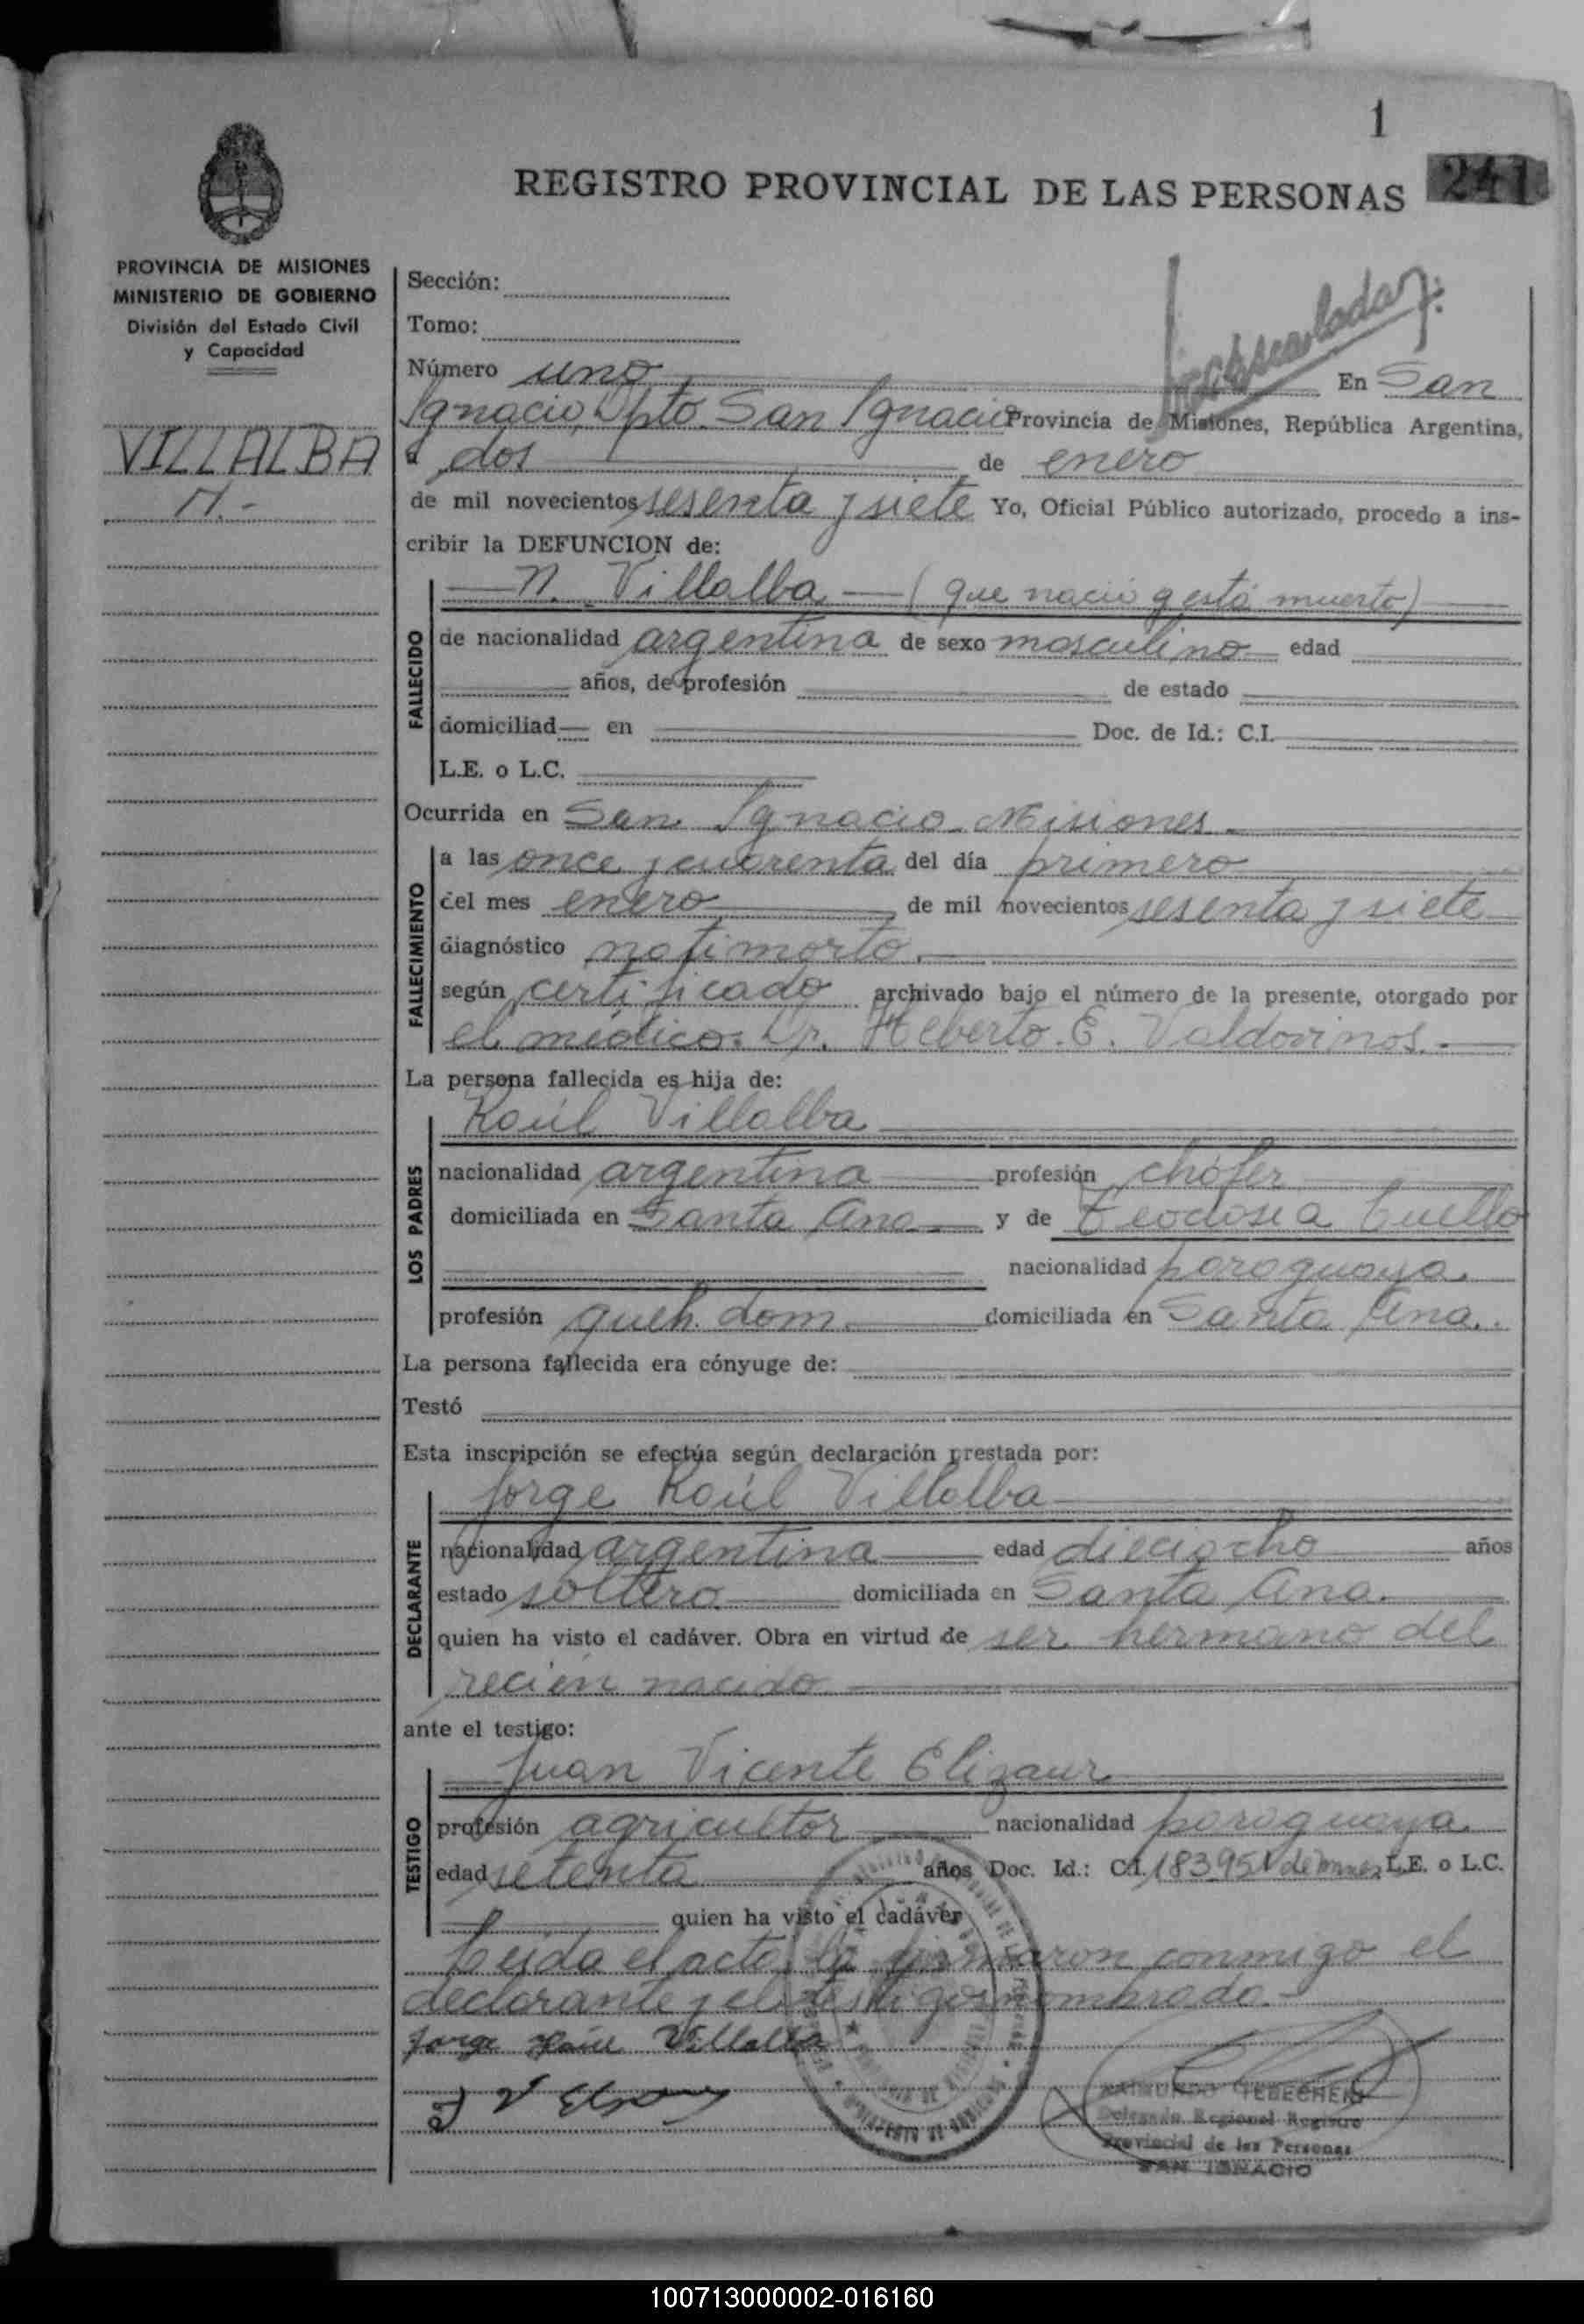 1
241
REGISTRO PROVINCIAL DE LAS PERSONAS
PROVINCIA DE MISIONES
MINISTERIO DE GOBIERNO
División del Estado Civil
y Capacidad
VILLALBA
N.-
Sección:
Tomo:
Número uno En San
Ignacio, Dpto. San Ignacio Provincia de Misiones, República Argentina,
a dos de enero
de mil novecientos sesenta y siete Yo, Oficial Público autorizado, procedo a ins-
cribir la DEFUNCION de:
N. Villalba — (que nació y está muerto)
FALLECIDO
de nacionalidad argentina de sexo masculino edad
años, de profesión de estado
domiciliad— en Doc. de Id.: C.I.
L.E. o L.C.
Ocurrida en San Ignacio - Misiones
FALLECIMIENTO
a las once y cuarenta del día primero
del mes enero de mil novecientos sesenta y siete
diagnóstico natimorto.
según certificado archivado bajo el número de la presente, otorgado por
el médico: Dr. Heberto E. Valdovinos.-
La persona fallecida es hija de:
Raúl Villalba
LOS PADRES
nacionalidad argentina profesión chófer
domiciliada en Santa Ana y de Teodosia Cuello
nacionalidad paraguaya.
profesión queh. dom. domiciliada en Santa Ana.
La persona fallecida era cónyuge de:
Testó
Esta inscripción se efectúa según declaración prestada por:
Jorge Raúl Villalba
DECLARANTE
nacionalidad argentina edad dieciocho años
estado soltero domiciliada en Santa Ana.
quien ha visto el cadáver. Obra en virtud de ser hermano del
recién nacido
ante el testigo:
Juan Vicente Elizaur
TESTIGO
profesión agricultor nacionalidad paraguaya
edad setenta años Doc. Id.: C.I. 183951 de L.E. o L.C.
quien ha visto el cadáver
Leida el acta, la firmaron conmigo el
declarante y el testigo nombrado.-
Jorge Raúl Villalba
J V
RAIMUNDO TEBECHERI
Delegado Regional Registro
Provincial de las Personas
SAN IGNACIO
100713000002-016160